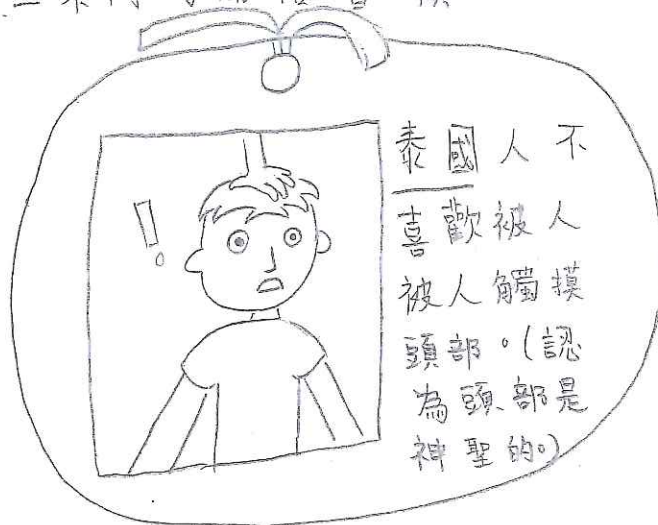 泰國人不
喜歡被人
被人觸摸
頭部。(認
為頭部是
神聖的。)